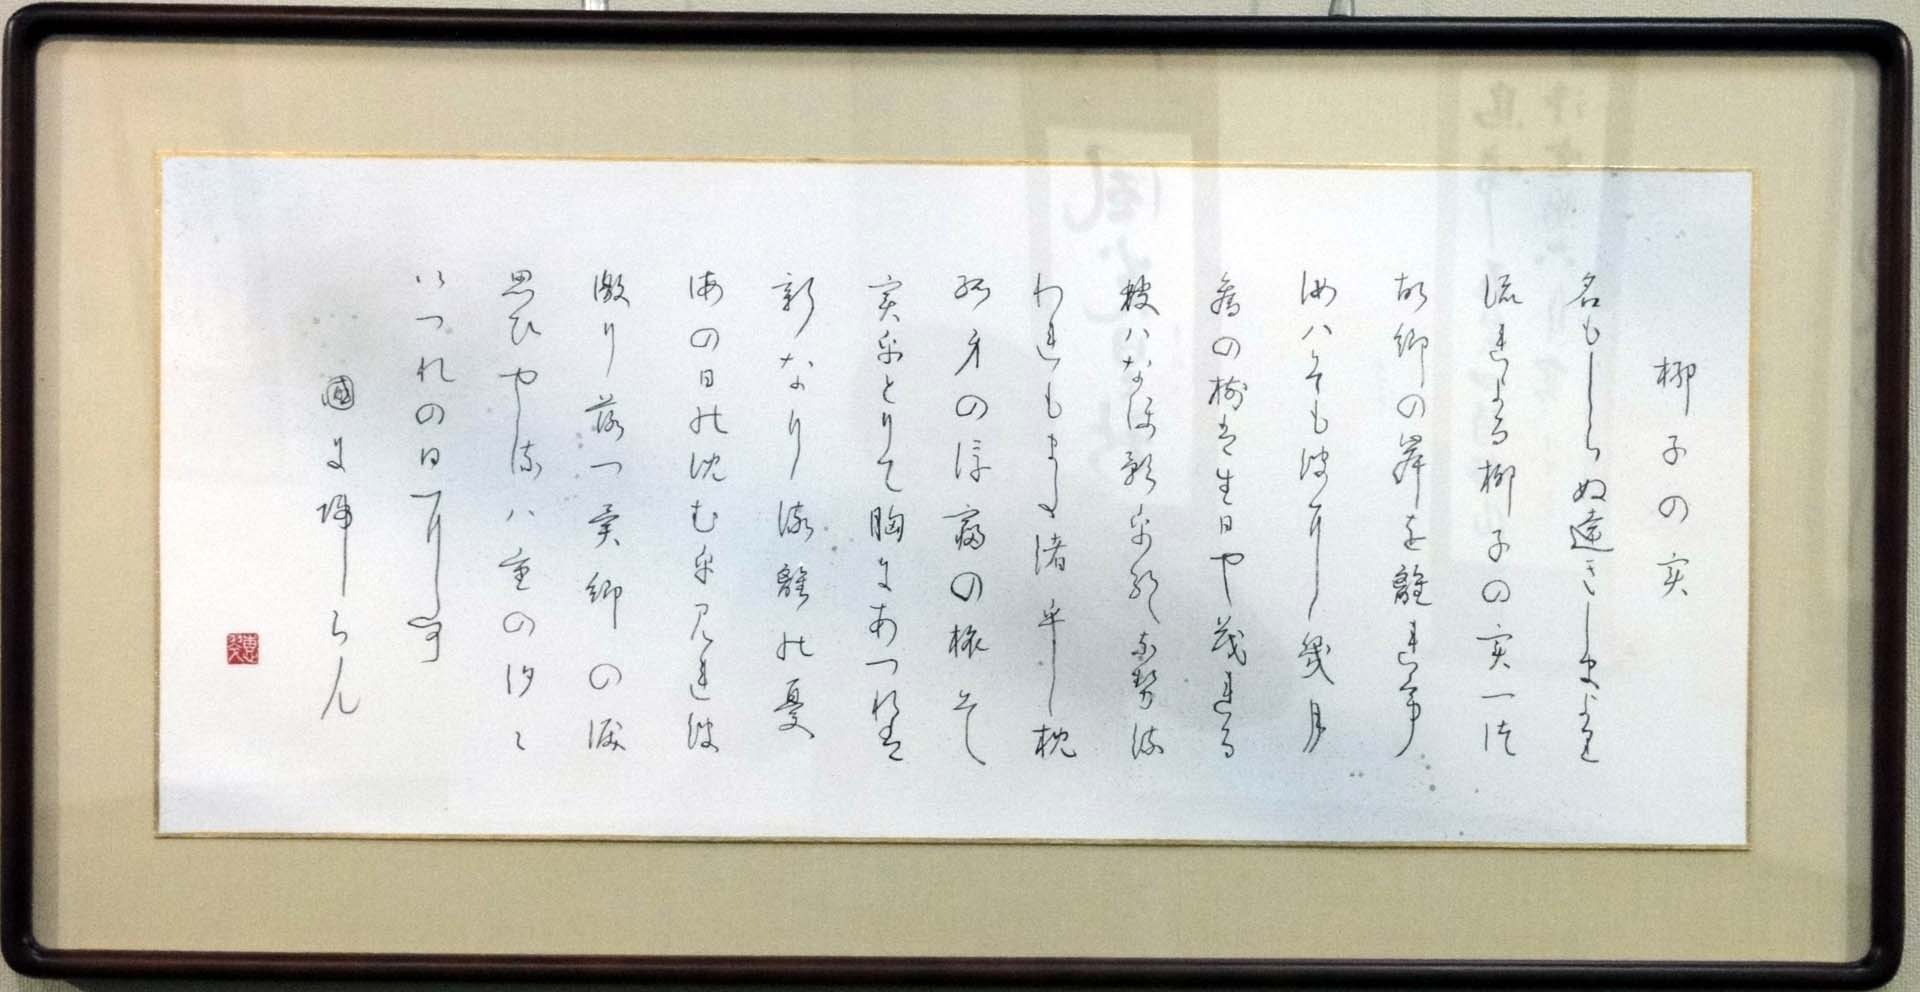 椰子の実
名もしらぬ遠きしまより
流れよる椰子の実一つ
故郷の岸を離れて
汝ハそも波に幾月
舊の樹は生日や茂れる
枝ハなほ影をやなせる
われもまた渚を枕
孤身の浮寝の旅そ
実をとりて胸にあつれは
新なり流離の憂
海の日の沈むを見れは
激り落つ異郷の涙
思ひやる八重の汐々
いつれの日にか
國に帰らん